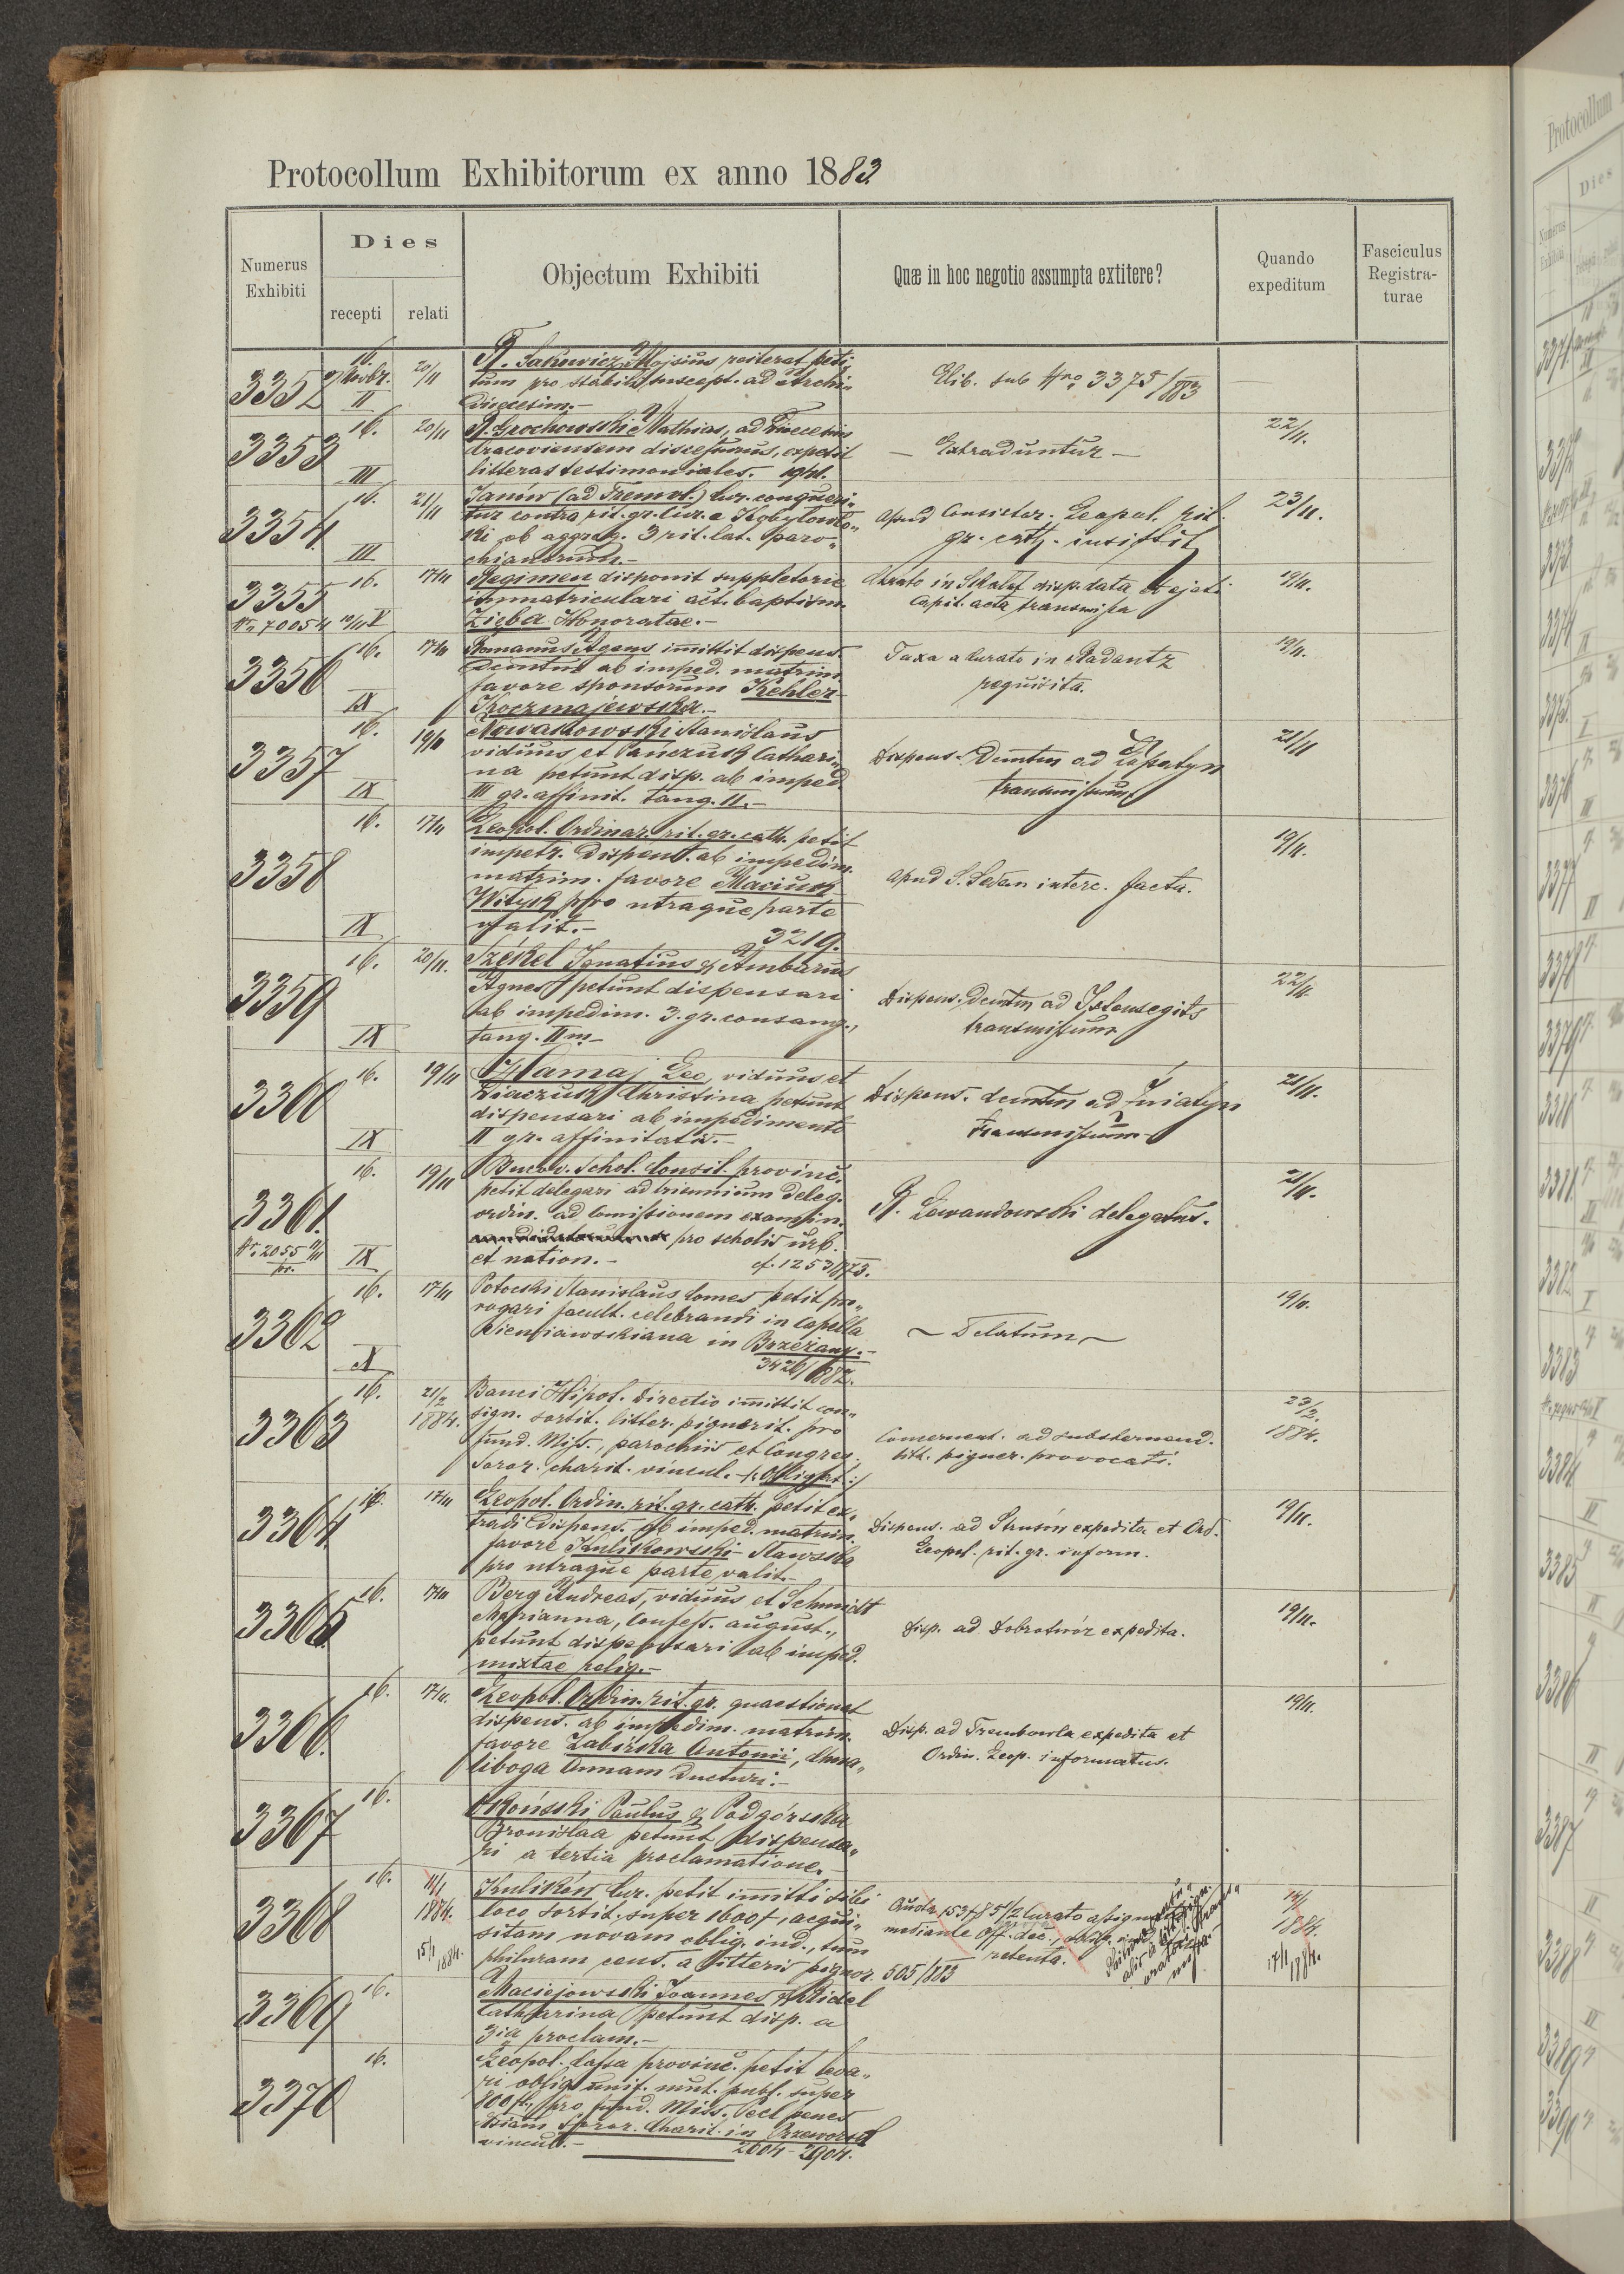 Protocollum Exhibitorum ex anno 1883
Numerus Exhibiti
Dies
recepti
relati
Objectum Exhibiti
Quæ in hoc negotio assumpta extitere?
Quando expeditum
Fasciculus Registra-turae
3352 16. Novbr. II 20/11
R. Sakowicz Aloysius reiterat peti-
tum pro stabili suscept. ad Archi-
dioecesim.-
Elib. sub Nro 3375/883
3353 16. III 20/11
R. Grochowski Mathias, ad Dioecesim
Cracoviensem discessurus, expetit
litteras testimoniales.
— Extraduntur —
22/11.
3354. 16. III 21/11
Janów (ad Trembl.) Cur. conqueri-
tur contra rit. gr. Cur. e Kobyłowło-
ki ob aggreg. 3 rit. lat. paro-
chianorum.-
apud Consistor. Leopol. rit.
gr. cath. insistit
23/11.
3355 16. 17/11
Nr. 70054 10/11 V
Regimen disponit suppletorie
immatriculari act. baptism.
Zięba Honoratae.-
disp. data et
Capit. acta transmissa
19/11.
3356 16. IX 17/11
Romanus Agens immittit dispens.
Demtum ab imped. matrim.
favore sponsorum Kehler
Koczmajewska.-
Taxa a Curato in Radautz
requisita.
19/11.
3357 16. IX 19/11
Nowakowski Stanislaus
viduus et Panczuk Cathari-
na petunt disp. ab imped.
III gr. affinit. tang. II.-
Dispens. Demtum ad Łopatyn
transmissum
21/11
3358 16. IX 17/11
Leopol. Ordinar. rit. gr. cath. petit
impetr. Dispens. ab impedim.
matrim. favore Maciuk
Wityk pro utraque parte
valit.-
3219.
apud S. Sedan interc. facta.
19/11.
3359 16. IX 20/11.
Székel Ignatius & Ambarus
Agnes petunt dispensari
ab impedim. 3. gr. consang.,
tang. IIm.-
Dispens. demtum ad Istensegits
transmissum
22/11.
3360 16. IX 19/11
Hamaj Leo, viduus et
Christina petunt
dispensari ab impedimento
II gr. affinitatis.-
Dispens. demtum ad Śniatyn
transmissum
21/11.
3361. 16. IX 19/11
Nr. 2055 pr.
Bucov. Schol. Consil. provinc.
petit delegari ad triennium deleg.
ordin. ad Comissionem examin.
pro scholis urb.
et nation.-
cf. 1253/873.
R. Lewandowski delegatus.
21/11.
3362 16. X 17/11
Potocki Stanislaus Comes petit pro-
rogari facult. celebrandi in Capella
Wieniawskiana in Brzeżany.-
3426/882.
~ Delatum ~
19/11.
3363 16. 21/2 1884.
Banci Hipot. Directio imittit con-
sign. sortit. litter. pignorit. pro
fund. Miss., parochiis et Congreg.
Soror. charit. vincul.
ad substernend.
litt. pignor. provocati.
23/2. 1884.
3364 16. 17/11
Leopol. Ordin. rit. gr. cath. petit ex-
tradi Dispens. ab imped. matrim.
favore Kulikowski - Stawska
pro utraque parte valit.-
Dispens. ad Strusów expedita et Ord.
Leopol. rit. gr. inform.
19/11.
3365 16. 17/11
Berg Andreas, viduus et Schmidt
Marianna, Confess. august.,
petunt dispensari ab imped.
mixtae relig.-
Disp. ad Dobrotwór expedita.
19/11.
3366. 16. 17/11.
Leopol. Ordin. rit. gr. quaestionat
dispens. ab impedim. matrim.
favore Zabirka Antonii, Chwa-
liboga Annam ducturi.-
Disp. ad Trembowla expedita et
Ordin. Leop. informatus.
19/11.
3367 16.
Skoński Paulus & Podgórska
Bronislaa petunt dispensa-
ri a tertia proclamatione.-
3368 16. 11/1 1884. 15/1 1884.
Kulików Cur. petit imitti sibi
loco sortit. super 1600f, acqui-
sitam novam oblig. ind., tum
philuram cens. a litteris pignor. 505/883
Quota 153f 85 1/2 Curato
mediante Off. dec.,
retenta.
14/1 1884.
17/1 1884.
3369 16.
Maciejowski Joannes & Riedel
Catharina petunt disp. a
3ia proclam.-
3370 16.
Leopol. Cassa provinc. petit leva-
ri oblig. unif. mut. publ. super
800 fl., pro fund. Miss. Eccl. penes
Soror. Charit. in Przeworsk
vincul.-
2604 - 2904.